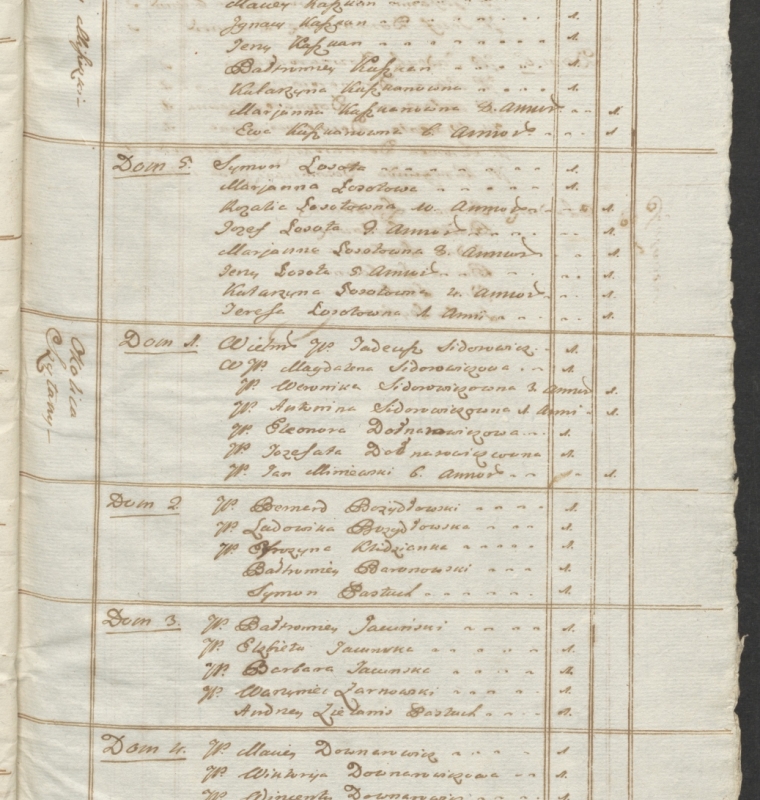 Maciey Kaszkan 1.
Jgnacy Kaszkan 1.
Jerzy Kaszkan 1.
Bałtromiey Kaszkan 1.
Katarzyna Kaszkanowna 1.
Marjanna Kaszkanowna 8. Annor. 1.
Ewa Kaszkanowna 6. Annor. 1.
Dom 5. Symon Łosota 1.
Marjanna Łosotowa 1.
Rozalia Łosotowna 10. Annor. 1.
Jozef Łosota 9. Annor. 1.
Marjanna Łosotowna 8. Annor. 1.
Jerzy Łosota 5 Annor. 1.
Katarzyna Łosotowna 4. Annor. 1.
Teresa Łosotowna 1 Anni 1.
Okolica
Dom 1. JP. Tadeusz Sidorowicz 1.
WJP. Magdalena Sidorowiczowa 1.
JP. Weronika Sidorowiczowna 3 Annor 1.
JP. Antonina Sidorowiczowna 1 Anni 1.
JP. Eleonora Downarowiczowa 1.
JP. Jozefata Downarowiczowna 1.
JP. Jan Miniewski 6. Annor 1.
Dom 2 JP. Bernard Bozydłowski 1.
JP. Ludowika Bozydłowska 1.
JP. Efrozyna 1.
Bałtromiey Baranowski 1.
Symon Pastuch 1.
Dom 3. JP. Bałtromiey Jacuński 1.
JP. Elzbieta Jacunska 1.
JP. Barbara Jacunska 1.
JP. Wawrzyniec Żarnowski 1.
Andrzey Pastuch 1.
Dom 4. JP. Maciey Downarowicz 1
JP. Wiktorya Downarowiczowa 1.
JP. Wincenty Downarowicz 1.